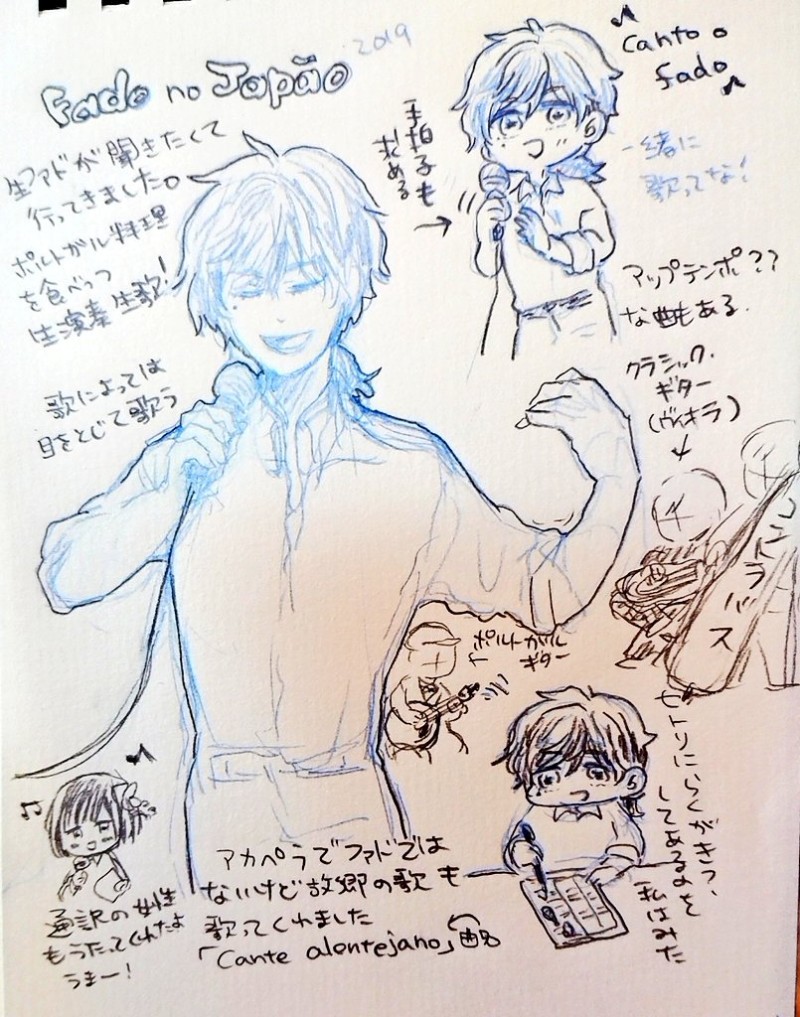 Fado no Japão
2019
生ファドが聞きたくて
行ってきました。
ポルトガル料理
を食べつつ
生演奏生歌!
歌によっては
目をとじて歌う
手拍子も
求める
canto o
fado
一緒に
歌ってな!
アップテンポ??
な曲もある.
クラシック.
ギター
(ヴィオラ)
コントラバス
ポルトガル
ギター
セトリにらくがきっ、
してあるのを
私はみた
アカペラでファドでは
ないけど故郷の歌も
歌ってくれました
「Cante alentejano」
通訳の女性
もうたってくれたよ
うまー!